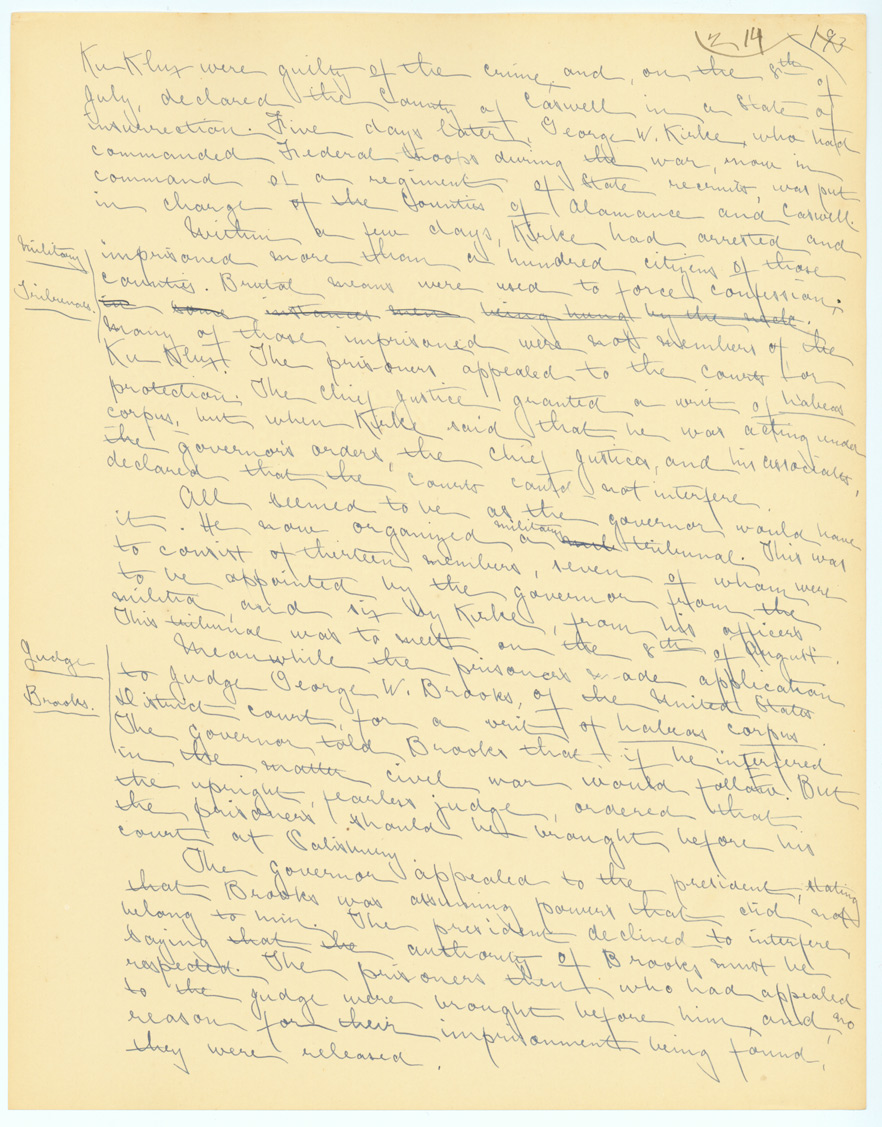 14
Ku Klux were guilty of the crime, and, on the 8th of
July, declared the County of Caswell in a State of
insurrection. Five days later, George W. Kirke, who had
commanded Federal troops during the war, now in
command of a regiment of State recruits, was put
in charge of the Counties of Alamance and Caswell.
Within a few days, Kirke had arrested and
Military
imprisoned more than a hundred citizens of those
Tribunals.
counties. Brutal means were used to force confession;
in some instances men being hung by the neck.
many of those imprisoned were not members of the
Ku Klux. The prisoners appealed to the courts for
protection. The Chief Justice granted a writ of habeas
corpus, but when Kirke said that he was acting under
the governor's orders, the Chief Justice, and his associates,
declared that the courts could not interfere.
All seemed to be as the governor would have
it. He now organized a military tribunal. This was
to consist of thirteen members, seven of whom were
to be appointed by the governor from the
militia, and six by Kirke, from his officers
This tribunal was to meet on the 8th of August.
Judge
Meanwhile the prisoners made application
to Judge George W. Brooks, of the United States
Brooks.
District court, for a writ of habeas corpus.
The governor told Brooks that if he interfered
in the matter civil war would follow. But
the upright, fearless judge, ordered that
the prisoners should be brought before his
court at Salisbury.
The governor appealed to the president, stating
that Brooks was assuming powers that did not
belong to him. The president declined to interfere,
saying that the authority of Brooks must be
respected. The prisoners then, who had appealed
to the judge were brought before him, and no
reason for their imprisonment being found,
they were released.